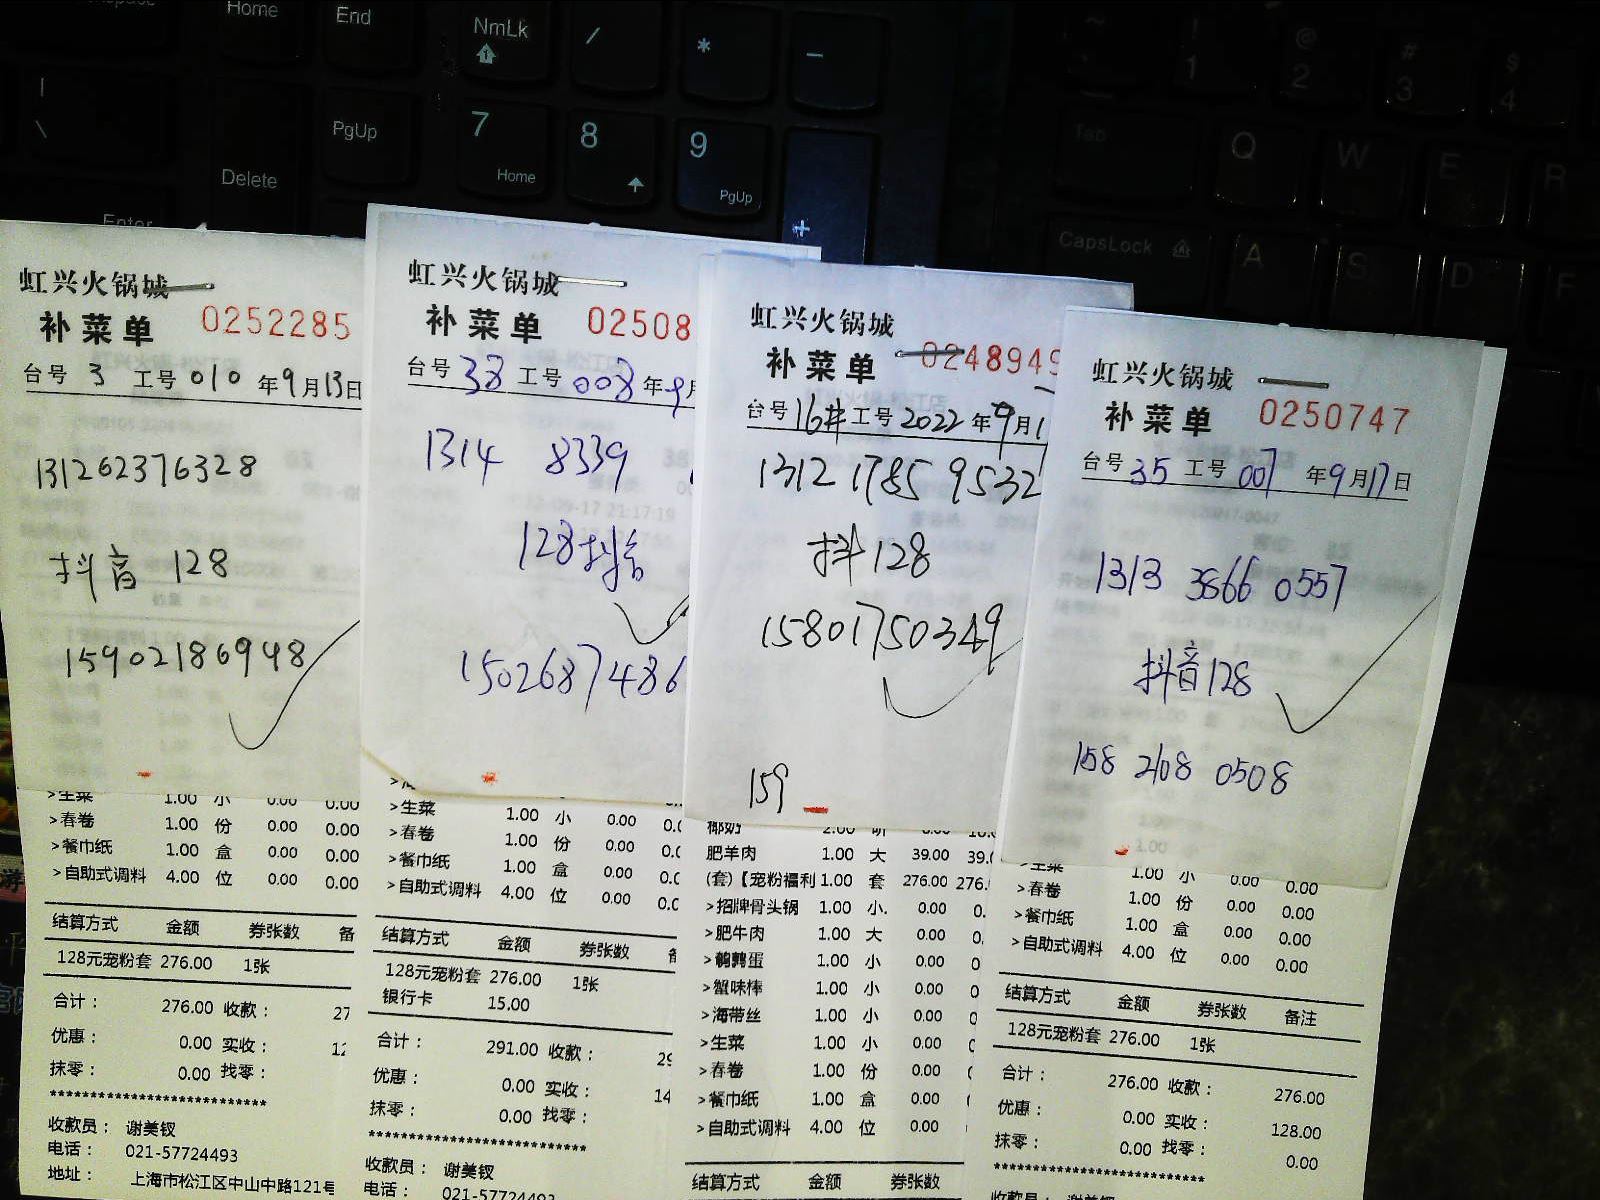 Home
End
NmLk
/
*
-
PgUp
7
Home
8
9
PgUp
Delete
Enter
+
1
@
2
#
3
$
4
Tab
Q
W
E
R
CapsLock
A
S
D
F
虹兴火锅城
补菜单 0252285
台号 3 工号 010 年9月13日
131262376328
抖音 128
15902186948
>生菜 1.00 小 0.00 0.00
>春卷 1.00 份 0.00 0.00
>餐巾纸 1.00 盒 0.00 0.00
>自助式调料 4.00 位 0.00 0.00
结算方式 金额 券张数 备
128元宠粉套 276.00 1张
合计： 276.00 收款： 27
优惠： 0.00 实收： 12
抹零： 0.00 找零：
收款员： 谢美钗
电话： 021-57724493
地址： 上海市松江区中山中路121号
虹兴火锅城
补菜单 02508
台号 38 工号 008 年9月
1314 8339
128抖音
1502687486
>生菜 1.00 小 0.00 0.0
>春卷 1.00 份 0.00 0.0
>餐巾纸 1.00 盒 0.00 0.0
>自助式调料 4.00 位 0.00 0.0
结算方式 金额 券张数 备
128元宠粉套 276.00 1张
银行卡 15.00
合计： 291.00 收款： 29
优惠： 0.00 实收： 14
抹零： 0.00 找零：
收款员： 谢美钗
电话： 021-57724493
虹兴火锅城
补菜单 0248949
台号 16# 工号 2022 年9月1
1312 1785 9532
抖128
15801750349
159
椰奶 2.00 听
肥羊肉 1.00 大 39.00 39.0
(套)【宠粉福利 1.00 套 276.00 276.
>招牌骨头锅 1.00 小. 0.00 0.
>肥牛肉 1.00 大 0.00 0.
>鹌鹑蛋 1.00 小 0.00 0
>蟹味棒 1.00 小 0.00 0
>海带丝 1.00 小 0.00 0
>生菜 1.00 小 0.00
>春卷 1.00 份 0.00
>餐巾纸 1.00 盒 0.00
>自助式调料 4.00 位 0.00
结算方式 金额 券张数
虹兴火锅城
补菜单 0250747
台号 35 工号 007 年9月17日
1313 3866 0557
抖音128
158 2108 0508
>生菜 1.00 小 0.00 0.00
>春卷 1.00 份 0.00 0.00
>餐巾纸 1.00 盒 0.00 0.00
>自助式调料 4.00 位 0.00 0.00
结算方式 金额 券张数 备注
128元宠粉套 276.00 1张
合计： 276.00 收款： 276.00
优惠： 0.00 实收： 128.00
抹零： 0.00 找零： 0.00
收款员： 谢美钗